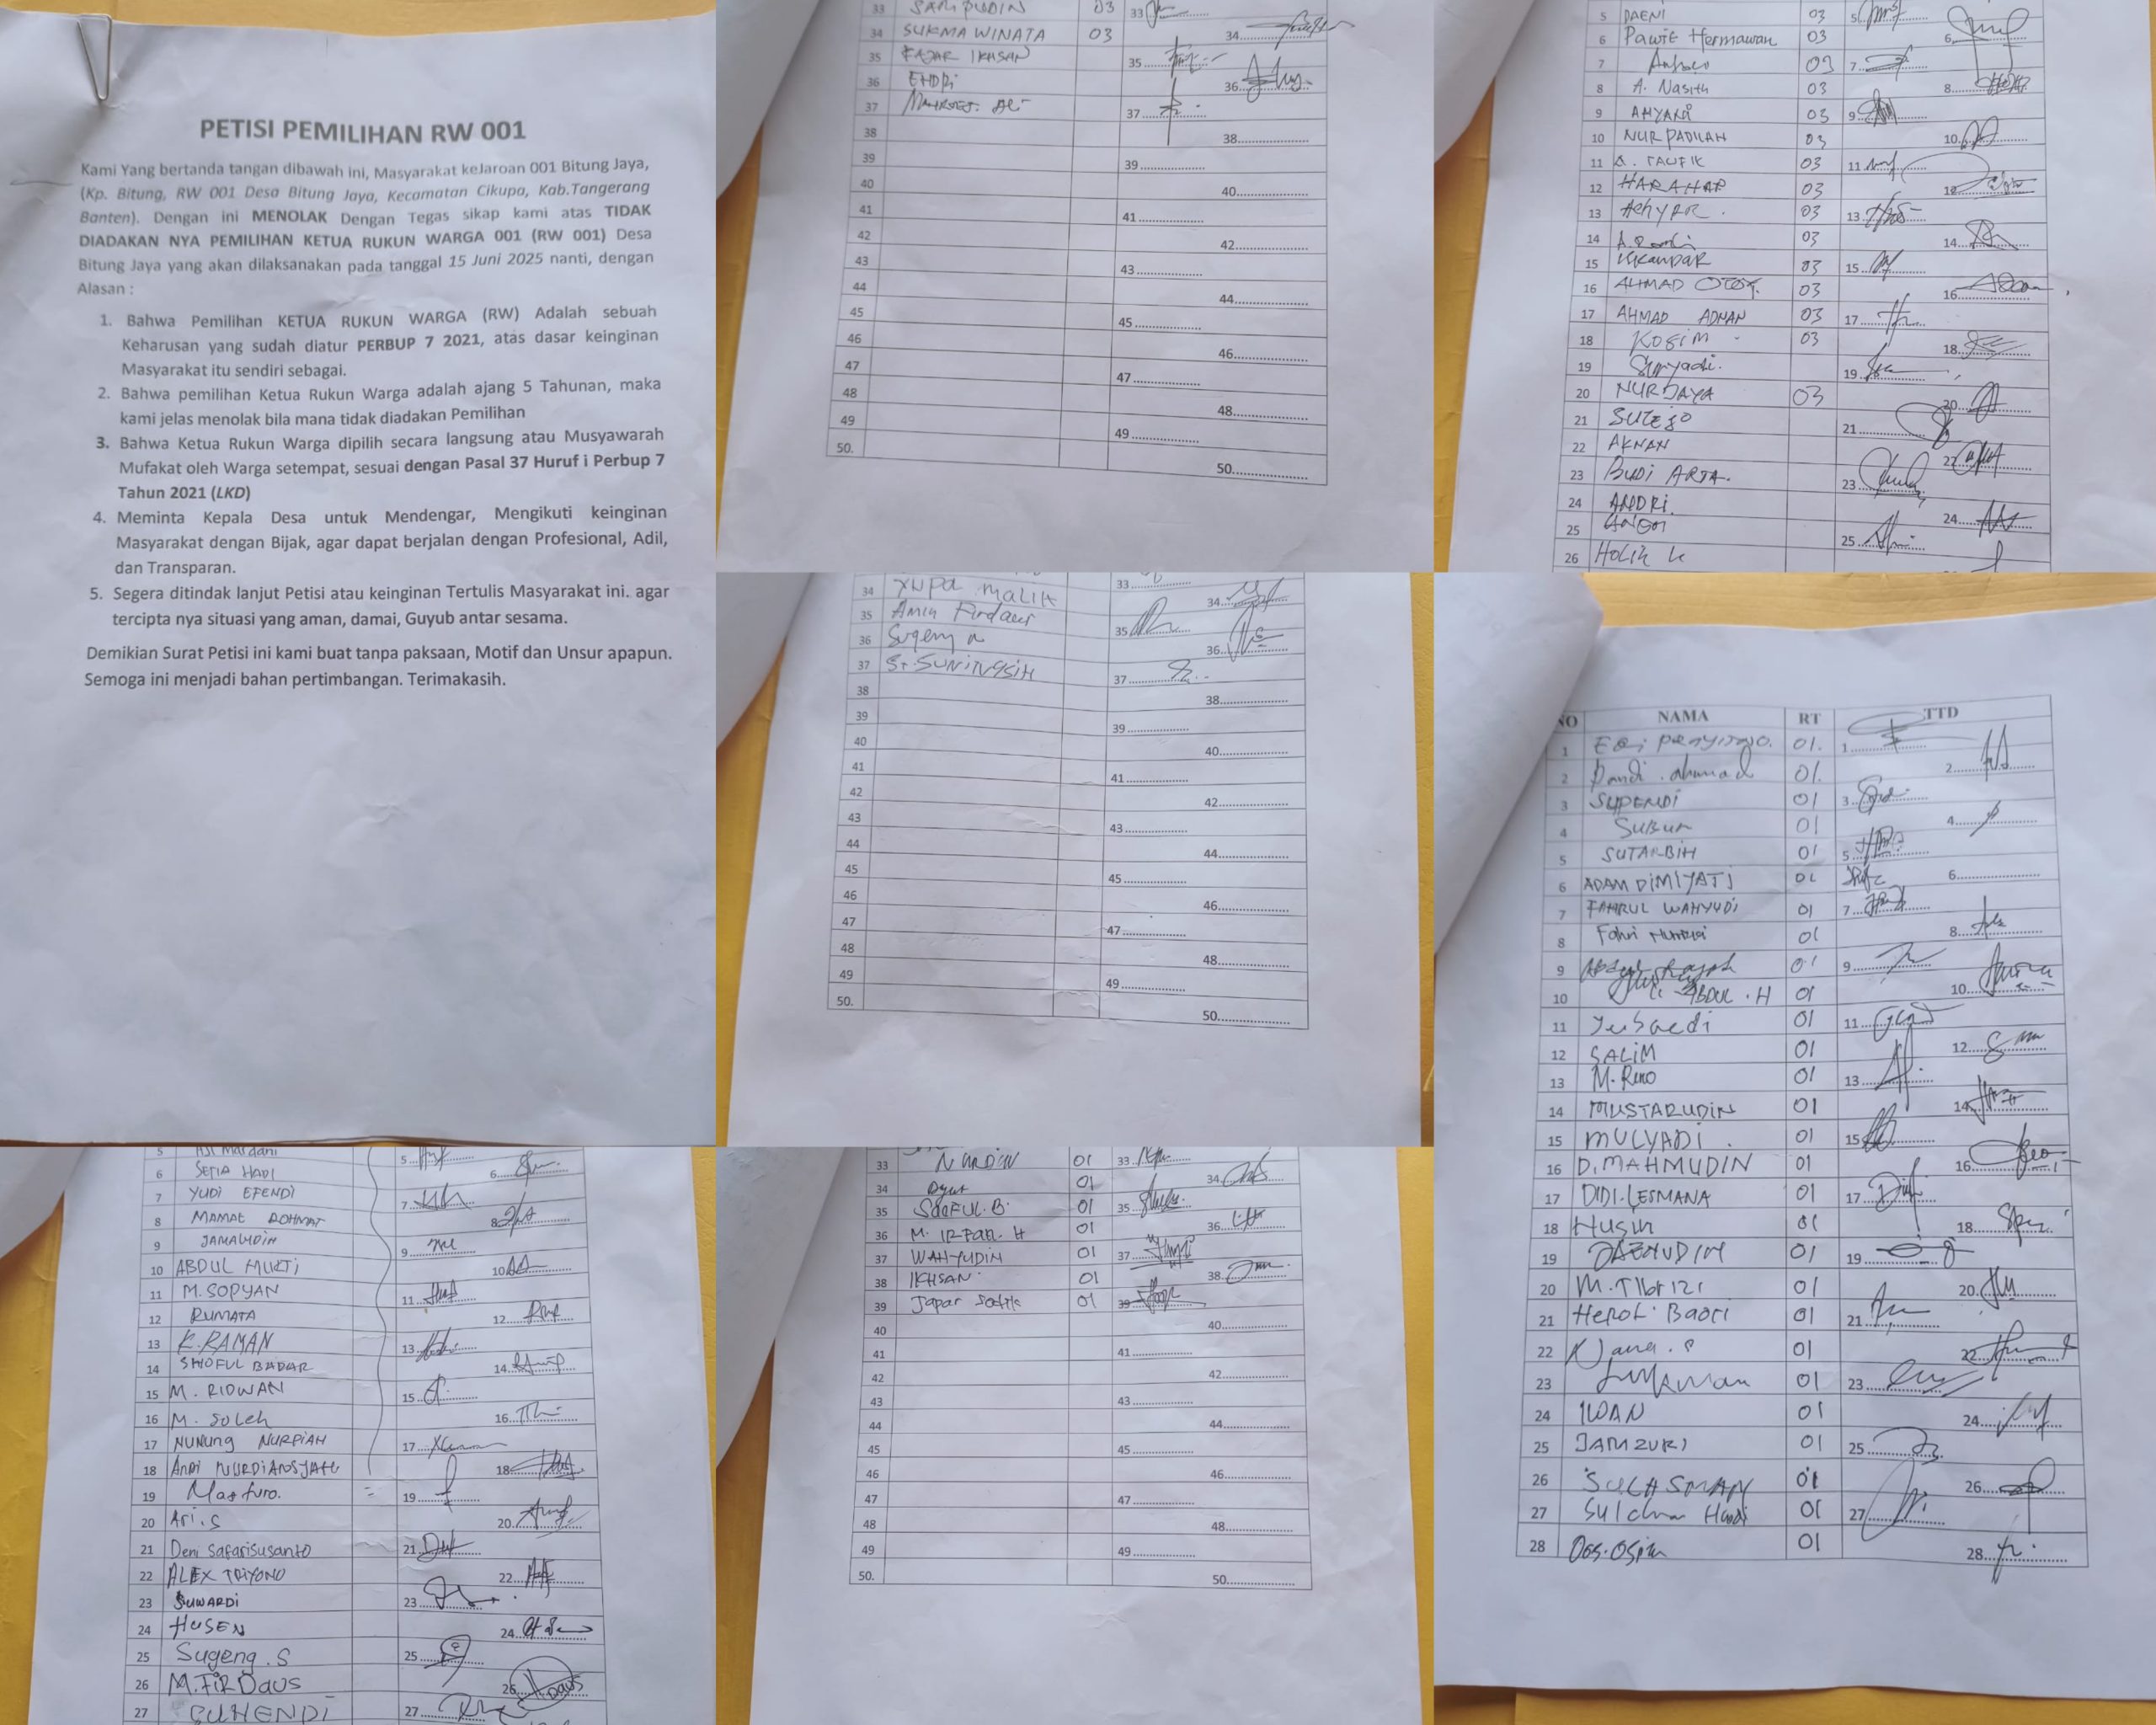 PETISI PEMILIHAN RW 001
Kami Yang bertanda tangan dibawah ini, Masyarakat keJaroan 001 Bitung Jaya,
(Kp. Bitung, RW 001 Desa Bitung Jaya, Kecamatan Cikupa, Kab.Tangerang
Banten). Dengan ini MENOLAK Dengan Tegas sikap kami atas TIDAK
DIADAKAN NYA PEMILIHAN KETUA RUKUN WARGA 001 (RW 001) Desa
Bitung Jaya yang akan dilaksanakan pada tanggal 15 Juni 2025 nanti, dengan
Alasan :
1. Bahwa Pemilihan KETUA RUKUN WARGA (RW) Adalah sebuah
Keharusan yang sudah diatur PERBUP 7 2021, atas dasar keinginan
Masyarakat itu sendiri sebagai.
2. Bahwa pemilihan Ketua Rukun Warga adalah ajang 5 Tahunan, maka
kami jelas menolak bila mana tidak diadakan Pemilihan
3. Bahwa Ketua Rukun Warga dipilih secara langsung atau Musyawarah
Mufakat oleh Warga setempat, sesuai dengan Pasal 37 Huruf i Perbup 7
Tahun 2021 (LKD)
4. Meminta Kepala Desa untuk Mendengar, Mengikuti keinginan
Masyarakat dengan Bijak, agar dapat berjalan dengan Profesional, Adil,
dan Transparan.
5. Segera ditindak lanjut Petisi atau keinginan Tertulis Masyarakat ini. agar
tercipta nya situasi yang aman, damai, Guyub antar sesama.
Demikian Surat Petisi ini kami buat tanpa paksaan, Motif dan Unsur apapun.
Semoga ini menjadi bahan pertimbangan. Terimakasih.
33 SARIPUDIN 03 33
34 SUKMA WINATA 03 34
35 FAJAR IKHSAN 35
36 ENDRi 36
37 37
38 38
39 39
40 40
41 41
42 42
43 43
44 44
45 45
46 46
47 47
48 48
49 49
50. 50
5 DAENI 03 5
6 Pawit Hermawan 03 6
7 03 7
8 A. Nasith 03 8
9 AHYANi 03 9
10 NUR PADILAH 03 10
11 A. TAUFIK 03 11
12 HARAHAP 03 12
13 AchYAR . 03 13
14 03 14
15 iskandar 03 15
16 AHMAD 03 16
17 AHMAD ADNAN 03 17
18 KOSIM 03 18
19 Suryadi. 19
20 NURJAYA 03 20
21 SUTEJO 21
22 AKNAN 22
23 BUDi ARTA. 23
24 ANDRi. 24
25 25
26 HOLiK
34 malik 33 34
35 Amin Firdaus 35
36 Sugeng 36
37 St. SUNiNGSIH 37
38 38
39 39
40 40
41 41
42 42
43 43
44 44
45 45
46 46
47 47
48 48
49 49
50. 50
NO NAMA RT TTD
1 01. 1
2 Dandi . ahmad 01. 2
3 SUPENDi 01 3
4 SuBur 01 4
5 SUTARBIH 01 5
6 ADAM DiMIYATI 01 6
7 FAHRUL WAHYUDi 01 7
8 Fahri 01 8
9 01 9
10 ABDUL . H 01 10
11 Jubaedi 01 11
12 SALiM 01 12
13 M. Reno 01 13
14 MUSTARUDiN 01 14
15 MULYADI . 01 15
16 D. MAHMUDIN 01 16
17 DIDI. LESMANA 01 17
18 Husin 01 18
19 JAENUDIN 01 19
20 M. TIbrizi 01 20
21 Herol. Baori 01 21
22 Nana . S 01 22
23 Lukman 01 23
24 IWAN 01 24
25 JAMZURI 01 25
26 SULASMAN 01 26
27 01 27
28 01 28
5 Mardani 5
6 SETIA HADI 6
7 YUDI EFENDI 7
8 MAMAT ROHMAT 8
9 JAMALUDIN 9
10 ABDUL MUKTi 10
11 M. SOPYAN 11
12 RUMATA 12
13 K. RAMAN 13
14 SHOFUL BADAR 14
15 M. RIDWAN 15
16 M. SoLeh 16
17 NUNUNG NURPIAH 17
18 ANDi NURDiANSJAH 18
19 Masturo. 19
20 Ari. S 20
21 Deni Safarisusanto 21
22 ALEX TRIYONO 22
23 SUWARDI 23
24 HUSEN 24
25 Sugeng . S 25
26 M. FiRDaus 26
27 SUHENDI 27
33 NURDIN 01 33
34 01 34
35 SAEFUL. B. 01 35
36 M. IRFAN. H 01 36
37 WAHYUDIN 01 37
38 IKHSAN 01 38
39 Japar Sodik 01 39
40 40
41 41
42 42
43 43
44 44
45 45
46 46
47 47
48 48
49 49
50. 50